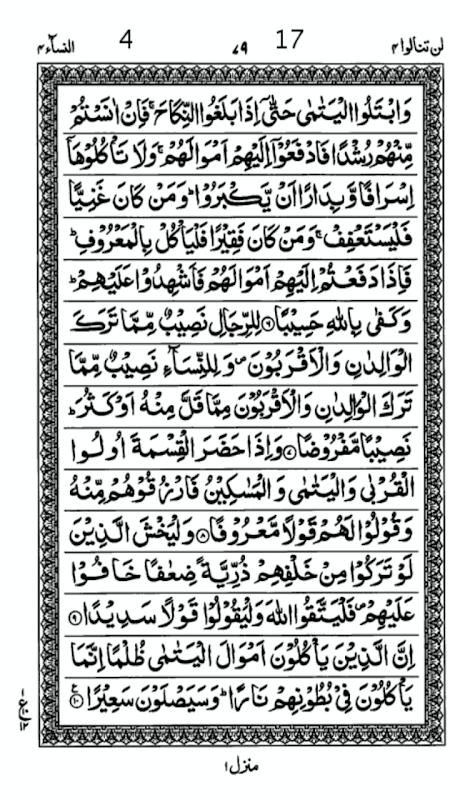 لن تنالوا ۴ 17 ۷۹ 4 النسآء ۴
وَابْتَلُوا الْيَتٰمٰى حَتّٰۤى اِذَا بَلَغُوا النِّكَاحَ ۚ فَاِنْ اٰنَسْتُمْ
مِّنْهُمْ رُشْدًا فَادْفَعُوْۤا اِلَيْهِمْ اَمْوَالَهُمْ ۚ وَلَا تَاْكُلُوْهَاۤ
اِسْرَافًا وَّبِدَارًا اَنْ يَّكْبَرُوْا ؕ وَمَنْ كَانَ غَنِيًّا
فَلْيَسْتَعْفِفْ ۚ وَمَنْ كَانَ فَقِيْرًا فَلْيَاْكُلْ بِالْمَعْرُوْفِ ؕ
فَاِذَا دَفَعْتُمْ اِلَيْهِمْ اَمْوَالَهُمْ فَاَشْهِدُوْا عَلَيْهِمْ ؕ
وَكَفٰى بِاللّٰهِ حَسِيْبًا ۶ لِلرِّجَالِ نَصِيْبٌ مِّمَّا تَرَكَ
الْوَالِدٰنِ وَالْاَقْرَبُوْنَ ۪ وَلِلنِّسَآءِ نَصِيْبٌ مِّمَّا
تَرَكَ الْوَالِدٰنِ وَالْاَقْرَبُوْنَ مِمَّا قَلَّ مِنْهُ اَوْ كَثُرَ ؕ
نَصِيْبًا مَّفْرُوْضًا ۷ وَاِذَا حَضَرَ الْقِسْمَةَ اُولُوا
الْقُرْبٰى وَالْيَتٰمٰى وَالْمَسٰكِيْنُ فَارْزُقُوْهُمْ مِّنْهُ
وَقُوْلُوْا لَهُمْ قَوْلًا مَّعْرُوْفًا ۸ وَلْيَخْشَ الَّذِيْنَ
لَوْ تَرَكُوْا مِنْ خَلْفِهِمْ ذُرِّيَّةً ضِعٰفًا خَافُوْا
عَلَيْهِمْ ۪ فَلْيَتَّقُوا اللّٰهَ وَلْيَقُوْلُوْا قَوْلًا سَدِيْدًا ۹
اِنَّ الَّذِيْنَ يَاْكُلُوْنَ اَمْوَالَ الْيَتٰمٰى ظُلْمًا اِنَّمَا
يَاْكُلُوْنَ فِيْ بُطُوْنِهِمْ نَارًا ؕ وَسَيَصْلَوْنَ سَعِيْرًا ۱۰
منزل ۱